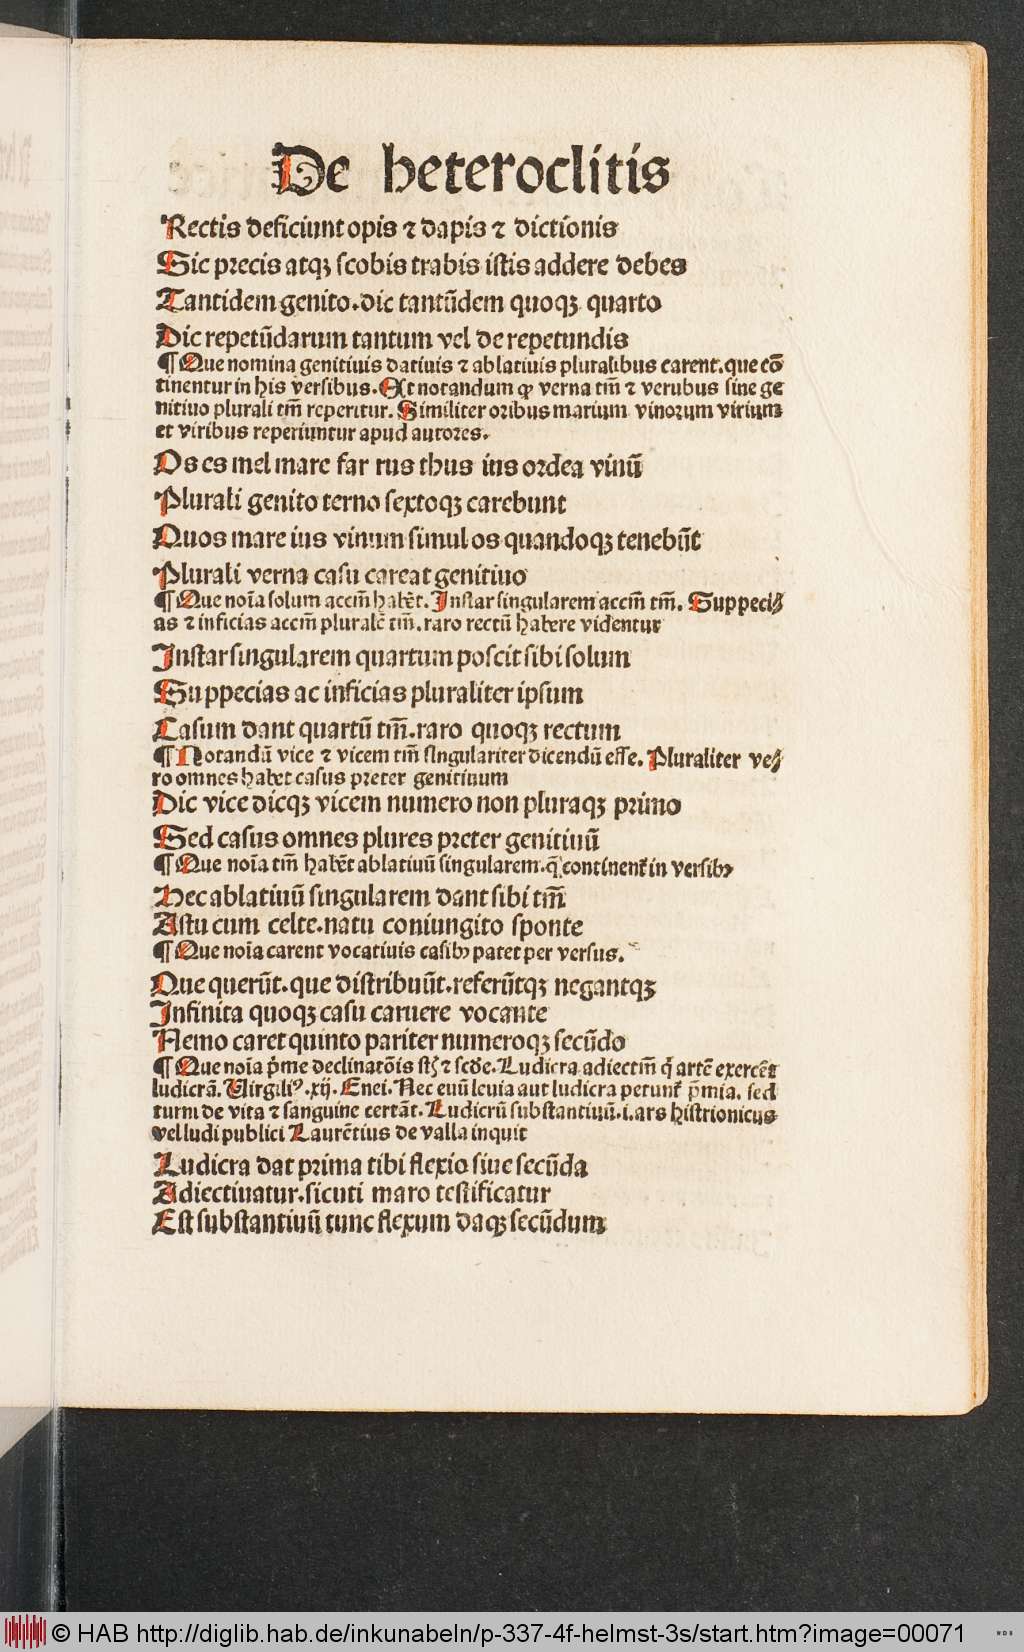 De heteroclitis
Rectis deficiunt opis ⁊ dapis ⁊ dictionis
Sic precis atqꝫ scobis trabis istis addere debes
Tantidem genito. dic tantūdem quoqꝫ quarto
Dic repetūdarum tantum vel de repetundis
¶ Que nomina genitiuis datiuis ⁊ ablatiuis pluralibus carent. que cō
tinentur in his versibus. Et notandum ꝙ verna tm̄ ⁊ verubus sine ge
nitiuo plurali tm̄ reperitur. Similiter oribus marium vinorum virium
et viribus reperiuntur apud autores.
Os es mel mare far rus thus ius ordea vinū
Plurali genito terno sextoqꝫ carebunt
Quos mare ius vinum simul os quandoqꝫ tenebūt
Plurali verna casu careat genitiuo
¶ Que noīa solum accm̄ habēt. Instar singularem accm̄ tm̄. Suppeci⸗
as ⁊ inficias accm̄ pluralē tm̄. raro rectū habere videntur
Instar singularem quartum poscit sibi solum
Suppecias ac inficias pluraliter ipsum
Casum dant quartū tm̄. raro quoqꝫ rectum
¶ Notandū vice ⁊ vicem tm̄ singulariter dicendū esse. Pluraliter ve⸗
ro omnes habet casus preter genitiuum
Dic vice dicqꝫ vicem numero non pluraqꝫ primo
Sed casus omnes plures preter genitiuū
¶ Que noīa tm̄ habēt ablatiuū singularem. q̄ continent᷑ in versibꝰ
Hec ablatiuū singularem dant sibi tm̄
Astu cum celte. natu coniungito sponte
¶ Que noīa carent vocatiuis casibꝰ patet per versus.
Que querūt. que distribuūt. referūtqꝫ negantqꝫ
Infinita quoqꝫ casu caruere vocante
Nemo caret quinto pariter numeroqꝫ secūdo
¶ Que noīa p̄me declinatōis st̄ ⁊ scd̄e. Ludicra adiectm̄ q̄ artē exercēt
ludicrā. Virgiliꝰ. xij. Enei. Nec eum̄ leuia aut ludicra petunt᷑ p̄mia. sed
turni de vita ⁊ sanguine certāt. Ludicrū substantiuū. i. ars histrionicus
vel ludi publici Laurētius de valla inquit
Ludicra dat prima tibi flexio siue secūda
Adiectiuatur. sicuti maro testificatur
Est substantiuū tunc flexum daqꝫ secūdum
© HAB http://diglib.hab.de/inkunabeln/p-337-4f-helmst-3s/start.htm?image=00071